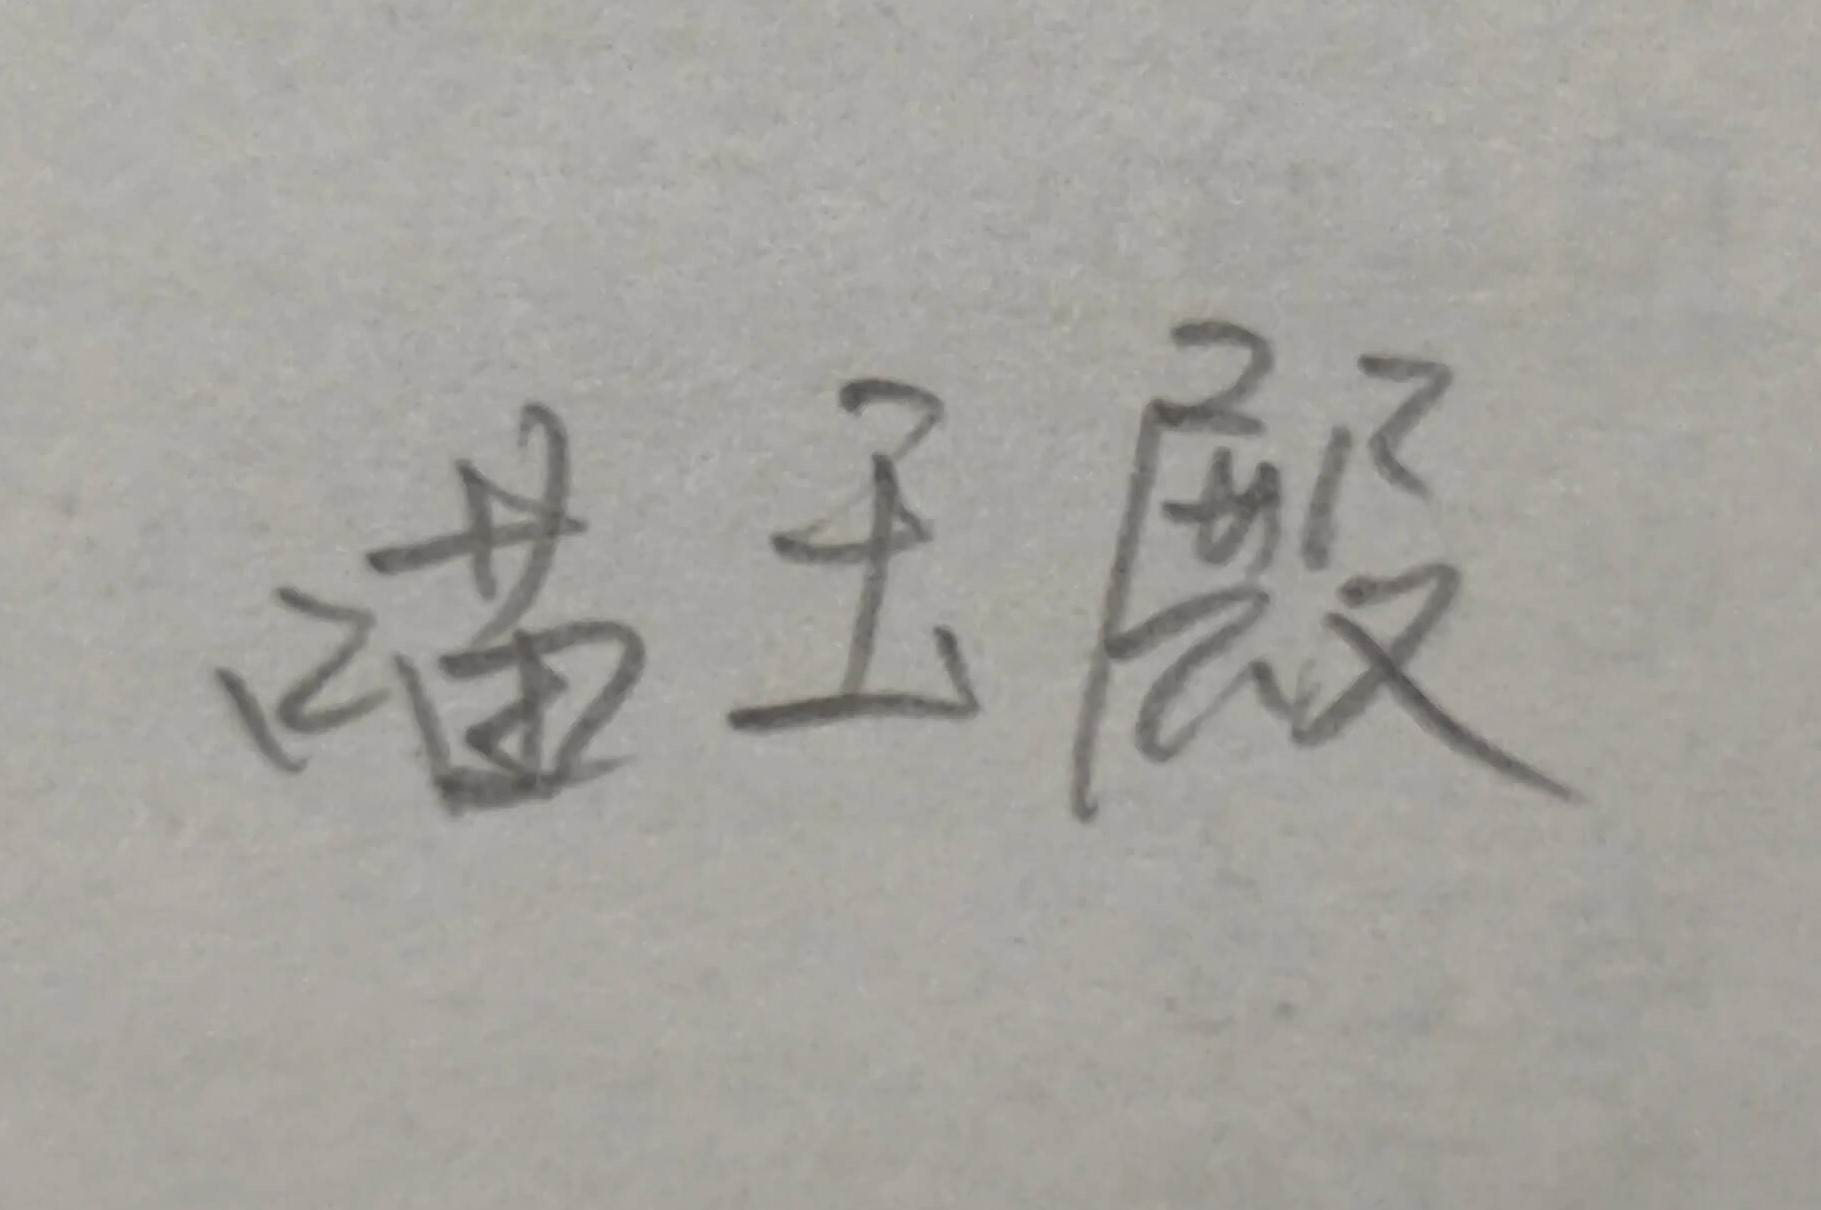 喵玉殿